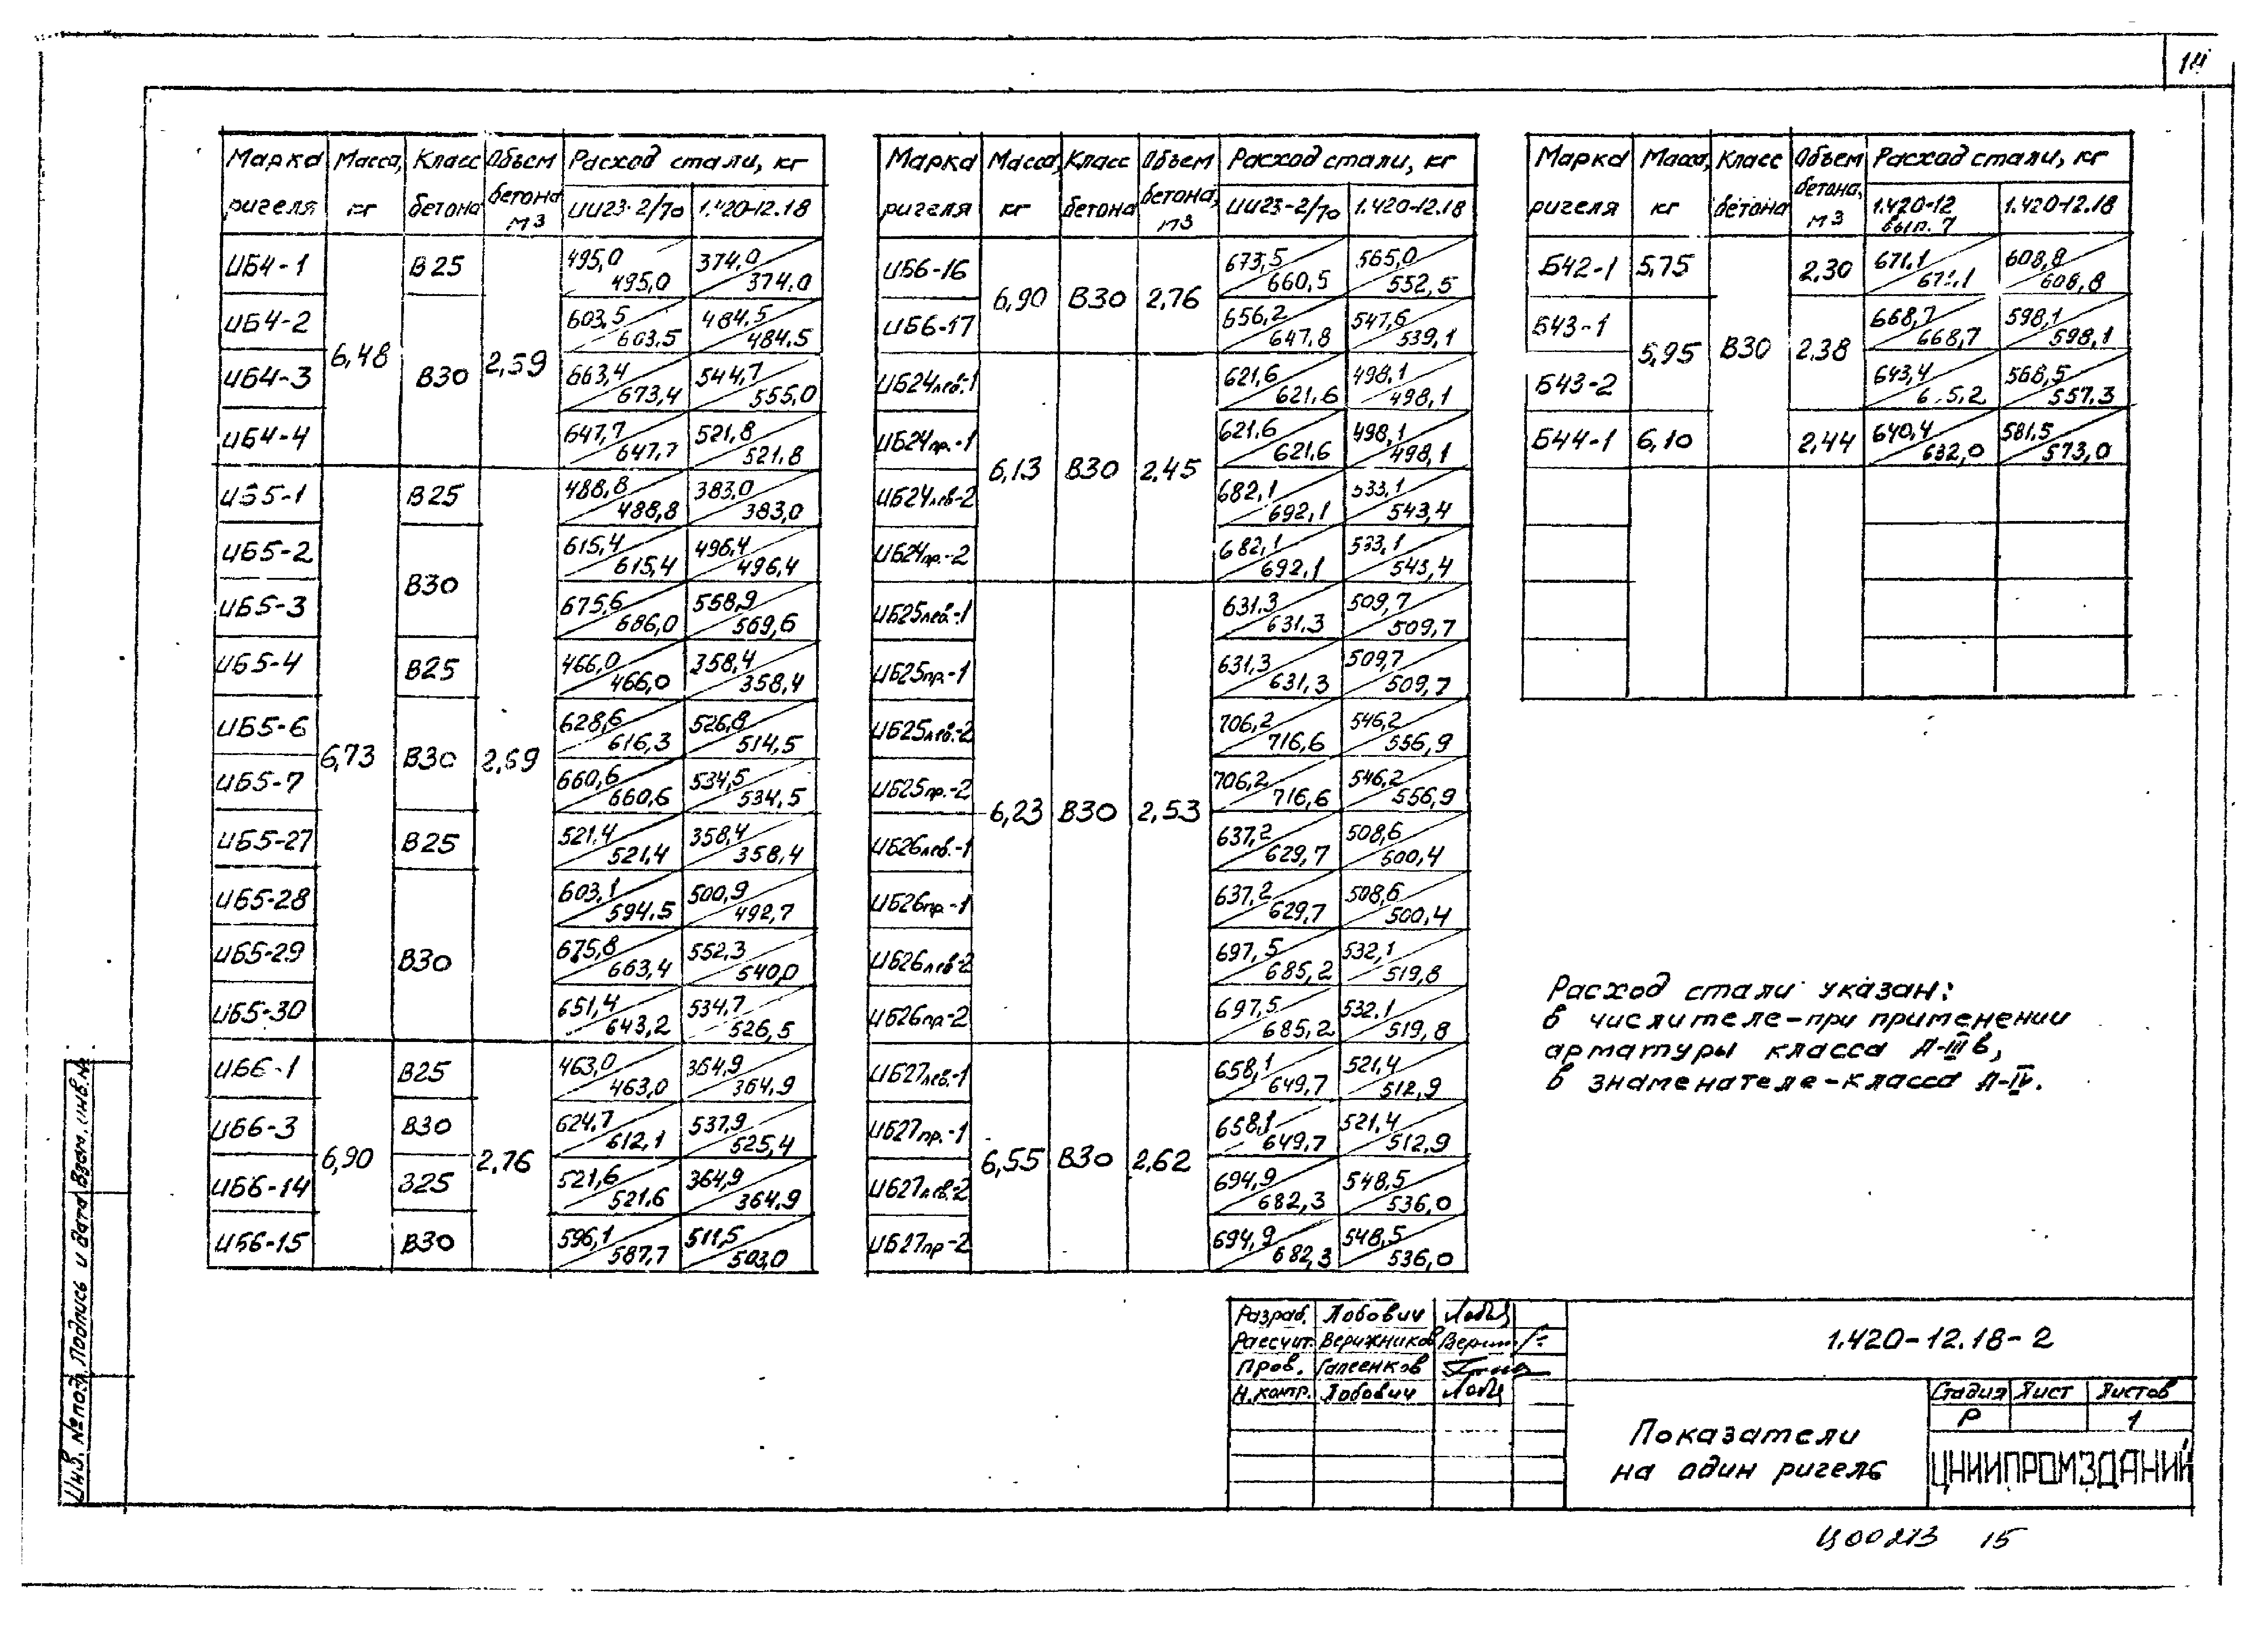 14
Марка ригеля | Масса, кг | Класс бетона | Объем бетона м3 | Расход стали, кг
ИИ23-2/70 | 1.420-12.18
ИБ4-1 | 6,48 | В25 | 2,59 | 495,0 / 495,0 | 374,0 / 374,0
ИБ4-2 | В30 | 603,5 / 603,5 | 484,5 / 484,5
ИБ4-3 | 663,4 / 673,4 | 544,7 / 555,0
ИБ4-4 | 647,7 / 647,7 | 521,8 / 521,8
ИБ5-1 | 6,73 | В25 | 2,69 | 488,8 / 488,8 | 383,0 / 383,0
ИБ5-2 | В30 | 615,4 / 615,4 | 496,4 / 496,4
ИБ5-3 | 675,6 / 686,0 | 558,9 / 569,6
ИБ5-4 | В25 | 466,0 / 466,0 | 358,4 / 358,4
ИБ5-6 | В30 | 628,6 / 616,3 | 526,8 / 514,5
ИБ5-7 | 660,6 / 660,6 | 534,5 / 534,5
ИБ5-27 | В25 | 521,4 / 521,4 | 358,4 / 358,4
ИБ5-28 | В30 | 603,1 / 594,5 | 500,9 / 492,7
ИБ5-29 | 675,8 / 663,4 | 552,3 / 540,0
ИБ5-30 | 651,4 / 643,2 | 534,7 / 526,5
ИБ6-1 | 6,90 | В25 | 2,76 | 463,0 / 463,0 | 364,9 / 364,9
ИБ6-3 | В30 | 624,7 / 612,1 | 537,9 / 525,4
ИБ6-14 | В25 | 521,6 / 521,6 | 364,9 / 364,9
ИБ6-15 | В30 | 596,1 / 587,7 | 511,5 / 503,0
Марка ригеля | Масса, кг | Класс бетона | Объем бетона, м3 | Расход стали, кг
ИИ23-2/70 | 1.420-12.18
ИБ6-16 | 6,90 | В30 | 2,76 | 673,5 / 660,5 | 565,0 / 552,5
ИБ6-17 | 656,2 / 647,8 | 547,6 / 539,1
ИБ24лев.-1 | 6,13 | В30 | 2,45 | 621,6 / 621,6 | 498,1 / 498,1
ИБ24пр.-1 | 621,6 / 621,6 | 498,1 / 498,1
ИБ24лев-2 | 682,1 / 692,1 | 533,1 / 543,4
ИБ24пр.-2 | 682,1 / 692,1 | 533,1 / 543,4
ИБ25лев.-1 | 6,23 | В30 | 2,53 | 631,3 / 631,3 | 509,7 / 509,7
ИБ25пр.-1 | 631,3 / 631,3 | 509,7 / 509,7
ИБ25лев.-2 | 706,2 / 716,6 | 546,2 / 556,9
ИБ25пр.-2 | 706,2 / 716,6 | 546,2 / 556,9
ИБ26лев.-1 | 637,2 / 629,7 | 508,6 / 500,4
ИБ26пр.-1 | 637,2 / 629,7 | 508,6 / 500,4
ИБ26лев-2 | 697,5 / 685,2 | 532,1 / 519,8
ИБ26пр-2 | 697,5 / 685,2 | 532,1 / 519,8
ИБ27лев.-1 | 6,55 | В30 | 2,62 | 658,1 / 649,7 | 521,4 / 512,9
ИБ27пр.-1 | 658,1 / 649,7 | 521,4 / 512,9
ИБ27лев.-2 | 694,9 / 682,3 | 548,5 / 536,0
ИБ27пр-2 | 694,9 / 682,3 | 548,5 / 536,0
Марка ригеля | Масса, кг | Класс бетона | Объем бетона, м3 | Расход стали, кг
1.420-12 вып. 7 | 1.420-12.18
Б42-1 | 5,75 | В30 | 2,30 | 671,1 / 671,1 | 608,8 / 608,8
Б43-1 | 5,95 | 2,38 | 668,7 / 668,7 | 598,1 / 598,1
Б43-2 | 643,4 | 568,5 / 557,3
Б44-1 | 6,10 | 2,44 | 640,4 / 632,0 | 581,5 / 573,0
Расход стали указан:
в числителе-при применении
арматуры класса А-IIIв,
в знаменателе-класса А-IV.
Инв. № подл. Подпись и дата Взам. инв. №
Разраб. Лобович
Рассчит. Верижников
Пров. Галеенков
Н.контр. Лобович
1.420-12.18-2
Показатели
на один ригель
Стадия Лист Листов
Р 1
ЦНИИПРОМЗДАНИЙ
Ц00213 15